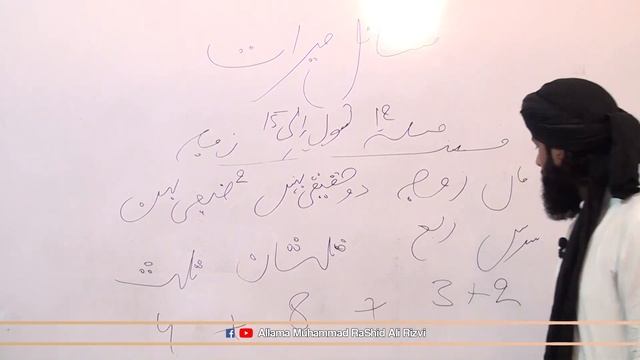 مسائل میراث
مسئلہ 12 تعول الی 15 زید
ماں زوجہ دو حقیقی بہنیں 2 خیفی بہن
سدس ربع ثلثان ثلث
2 + 3 + 8 + 4
Allama Muhammad RaShid Ali Rizvi